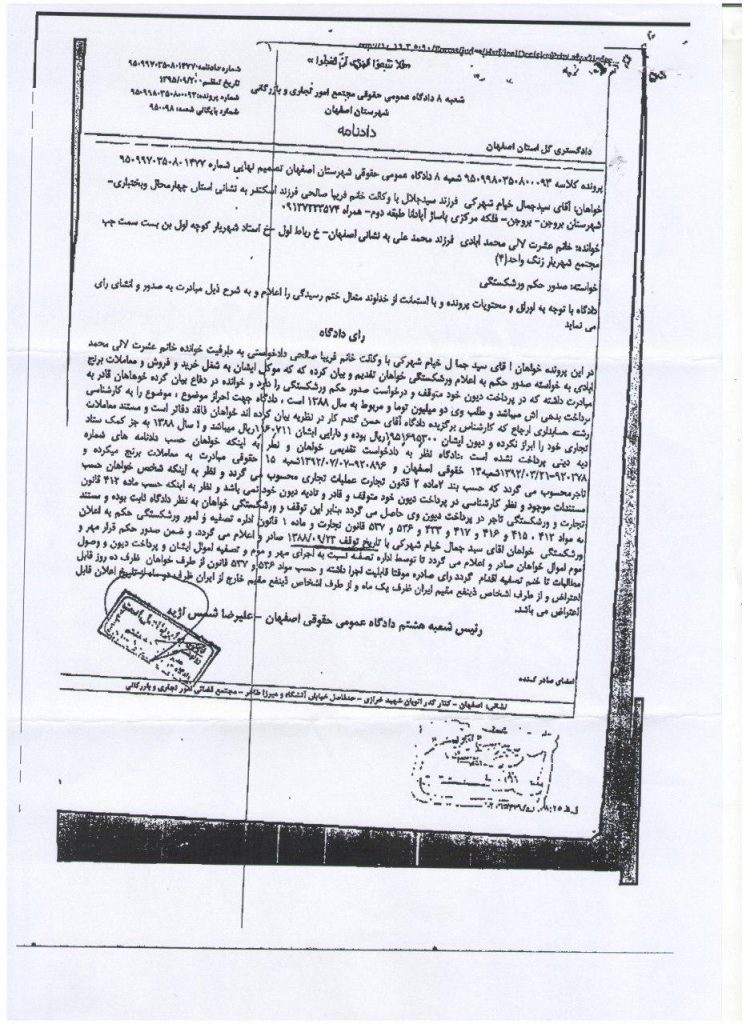 «فلا تتبعوا الهوی أن تعدلوا»
شماره دادنامه: ۹۵۰۹۹۷۰۳۵۰۸۰۱۴۷۷
تاریخ تنظیم: ۱۳۹۵/۰۹/۲۰
شماره پرونده: ۹۵۰۹۹۸۰۳۵۰۸۰۰۰۹۳
شماره بایگانی شعبه: ۹۵۰۰۹۸
شعبه ۸ دادگاه عمومی حقوقی مجتمع امور تجاری و بازرگانی
شهرستان اصفهان
دادنامه
دادگستری کل استان اصفهان
پرونده کلاسه ۹۵۰۹۹۸۰۳۵۰۸۰۰۰۹۳ شعبه ۸ دادگاه عمومی حقوقی شهرستان اصفهان تصمیم نهایی شماره ۹۵۰۹۹۷۰۳۵۰۸۰۱۴۷۷
خواهان: آقای سیدجمال خیام شهرکی فرزند سیدجلال با وکالت خانم فریبا صالحی فرزند اسکندر به نشانی استان چهارمحال وبختیاری-
شهرستان بروجن- بروجن- فلکه مرکزی پاساژ آپادانا طبقه دوم- همراه ۰۹۱۳۷۲۳۳۵۷۴
خوانده: خانم عشرت لالی محمد آبادی فرزند محمد علی به نشانی اصفهان- خ رباط اول -خ استاد شهریار کوچه اول بن بست سمت چپ
مجتمع شهریار زنگ واحد(۴)
خواسته: صدور حکم ورشکستگی
دادگاه با توجه به اوراق و محتویات پرونده و با استعانت از خداوند متعال ختم رسیدگی را اعلام و به شرح ذیل مبادرت به صدور و انشای رای
می نماید
رای دادگاه
در این پرونده خواهان آقای سید جمال خیام شهرکی با وکالت خانم فریبا صالحی دادخواستی به طرفیت خوانده خانم عشرت لالی محمد
ابادی به خواسته صدور حکم به اعلام ورشکستگی خواهان تقدیم و بیان کرده که که موکل ایشان به شغل خرید و فروش و معاملات برنج
مبادرت داشته که در پرداخت دیون خود متوقف و درخواست صدور حکم ورشکستگی را دارد و خوانده در دفاع بیان کرده خواهان قادر به
پرداخت بدهی اش میباشد و طلب وی دو میلیون توما و مربوط به سال ۱۳۸۸ است ، دادگاه جهت احراز موضوع ، موضوع را به کارشناسی
رشته حسابداری ارجاع که کارشناس برگزیده دادگاه آقای حسن گندم کار در نظریه بیان کرده اند خواهان فاقد دفاتر است و مستند معاملات
تجاری خود را ابراز نکرده و دیون ایشان ۱۹۵۱۶۹۵۳۰۰ریال بوده و دارایی ایشان ۱۱۶۰۷۱۱ریال میباشد و از سال ۱۳۸۸ به جز کمک ستاد
دیه دینی پرداخت نشده است ،دادگاه نظر به دادخواست تقدیمی خواهان و نظر به اینکه خواهان حسب دادنامه های شماره
۹۲۰۲۷۸-۱۳۹۲/۰۳/۲۱شعبه۱۴ حقوقی اصفهان و ۹۲۰۸۹۶-۱۳۹۲/۰۷/۰۷شعبه ۱۵ حقوقی مبادرت به معاملات برنج میکرده و
تاجرمحسوب می گردد که حسب بند ۲ماده ۲ قانون تجارت عملیات تجاری محسوب می گردد و نظر به اینکه شخص خواهان حسب
مستندات موجود و نظر کارشناسی در پرداخت دیون خود متوقف و قادر و تادیه دیون خود نمی باشد و نظر به اینکه حسب ماده ۴۱۲ قانون
تجارت و ورشکستگی تاجر در پرداخت دیون وی حاصل می گردد ،بنابر این توقف و ورشکستگی خواهان به نظر دادگاه ثابت بوده و مستند
به مواد ۴۱۲ ، ۴۱۵ و ۴۱۶ و ۴۱۷ و ۴۳۳ و ۵۳۶ و ۵۳۷ قانون تجارت و ماده ۱ قانون اداره تصفیه و امور ورشکستگی حکم به اعلان
ورشکستگی خواهان اقای سید جمال خیام شهرکی با تاریخ توقف ۱۳۸۸/۰۹/۲۳ صادر و اعلام می گردد. و ضمن صدور حکم قرار مهر و
موم اموال خواهان صادر و اعلام می گردد تا توسط اداره تصفیه نسبت به اجرای مهر و موم و تصفیه اموال ایشان و پرداخت دیون و وصول
مطالبات تا ختم تصفیه اقدام گردد رای صادره موقتا قابلیت اجرا داشته و حسب مواد ۵۳۶ و ۵۳۷ قانون از طرف خواهان ظرف ده روز قابل
اعتراض و از طرف اشخاص ذینفع مقیم ایران ظرف یک ماه و از طرف اشخاص ذینفع مقیم خارج از ایران ظرف دو ماه از تاریخ اعلان قابل
اعتراض می باشد.
رئیس شعبه هشتم دادگاه عمومی حقوقی اصفهان - علیرضا شمس آژیه
امضای صادر کننده
نشانی: اصفهان - کنار گذر اتوبان شهید خرازی - حدفاصل خیابانی آتشگاه و میرزا طاهر - مجتمع قضائی امور تجاری و بازرگانی